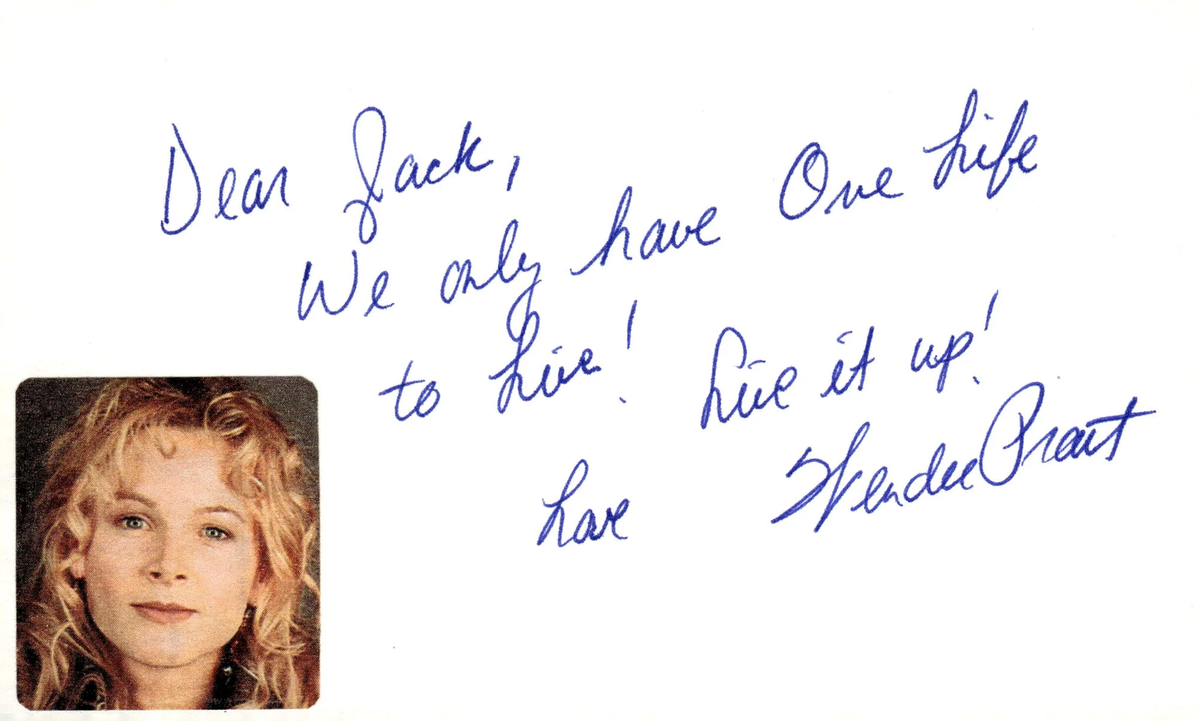 Dear Jack,
We only have One Life
to Live! Live it up!
Love Wendee Pratt